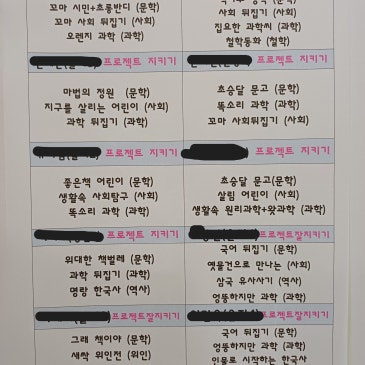 꼬마 시민+초롱반디 (문학)
꼬마 사회 뒤집기 (사회)
오렌지 과학 (과학)
사회 뒤집기 (사회)
집요한 과학씨 (과학)
철학동화 (철학)
프로젝트 지키기
프로젝트 지키기
마법의 정원 (문학)
지구를 살리는 어린이 (사회)
과학 뒤집기 (과학)
초승달 문고 (문학)
똑소리 과학 (과학)
꼬마 사회뒤집기 (사회)
프로젝트 지키기
프로젝트 지키기
좋은책 어린이 (문학)
생활속 사회탐구 (사회)
똑소리 과학 (과학)
초승달 문고(문학)
살림 어린이 (사회)
생활속 원리과학+왓과학 (과학)
프로젝트 지키기
프로젝트잘지키기
위대한 책벌레 (문학)
과학 뒤집기 (과학)
명랑 한국사 (역사)
국어 뒤집기 (문학)
옛물건으로 만나는 (사회)
삼국 유사사기 (역사)
엉뚱하지만 과학 (과학)
프로젝트잘지키기
프로젝트잘지키기
그래 책이야 (문학)
새싹 위인전 (위인)
국어 뒤집기 (문학)
엉뚱하지만 과학 (과학)
인물로 시작하는 한국사